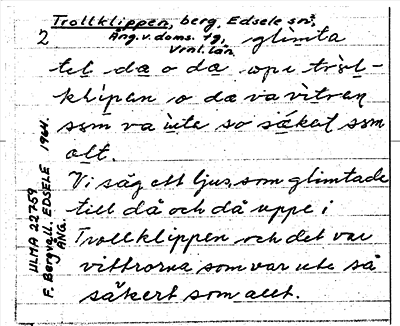 Trollklippen, berg, Edsele sn,
Ång. v. doms. 79,
Vrnl. län
2 glimta
tel da o da uppe i trȯl-
klipen o de va vitren
som va ute so säkat som
alt.
Vi såg ett ljus, som glimtade
till då och då uppe i
Trollklippen och det var
vittrorna som var ute så
säkert som allt.
ULMA 22759
F. Bergvall. EDSELE 1964.
ÅNG.